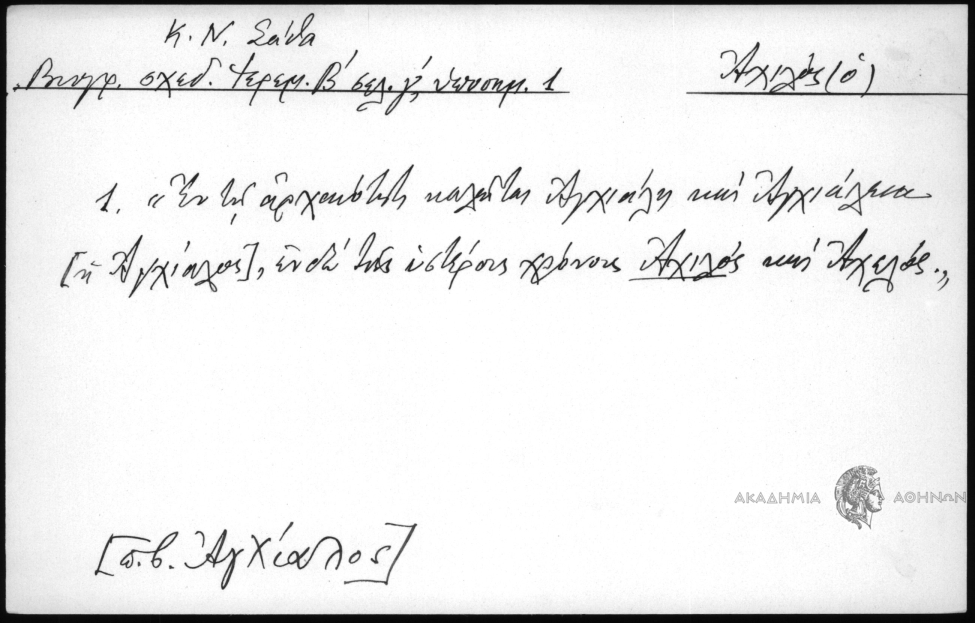 Κ. Ν. Σάθα
Βιογρ. σχεδ. Ἱερεμ. Β΄ σελ. γ΄, ὑποσημ. 1
Ἀχιλός (ὁ)
1. «Ἐν τῇ ἀρχαιότητι καλεῖται Ἀγχιάλη καὶ Ἀγχιάλεια
[ἢ Ἀγχίαλος], ἐν δὲ τοῖς ὑστέροις χρόνοις Ἀχιλός καὶ Ἀχελός.„
ΑΚΑΔΗΜΙΑ ΑΘΗΝΩΝ
[π.β. Ἀγχίαλος]